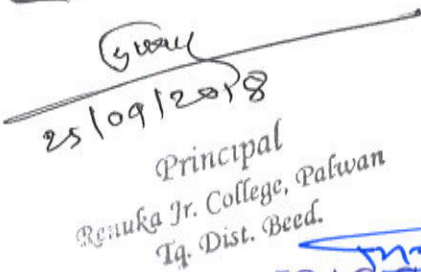 25/09/2018
Principal
Renuka Jr. College, Palwan
Tq. Dist. Beed.